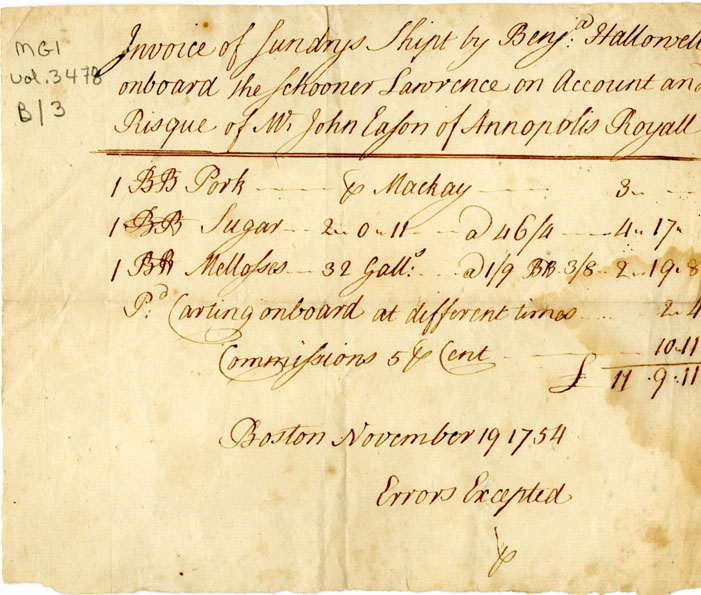 MG1
vol. 3478
B/3
Invoice of Sundrys Shipt by Benj:ª Hallowell
onboard the Schooner Lawrence on Account and
Risque of Mr John Eason of Annopolis Royall
1 BB Pork ⅌ Mackay 3..
1 BB Sugar 2.. 0.. 11 a 46/4 4.. 17..
1 BB Mellosses 32 Gall:s a 1/9 BB 3/8 2.. 19.. 8
P.d Carting onboard at different times 2.. 4
Commissions 5 ⅌ Cent 10.. 11
£ 11.. 9.. 11
Boston November 19 1754
Errors Excepted
⅌